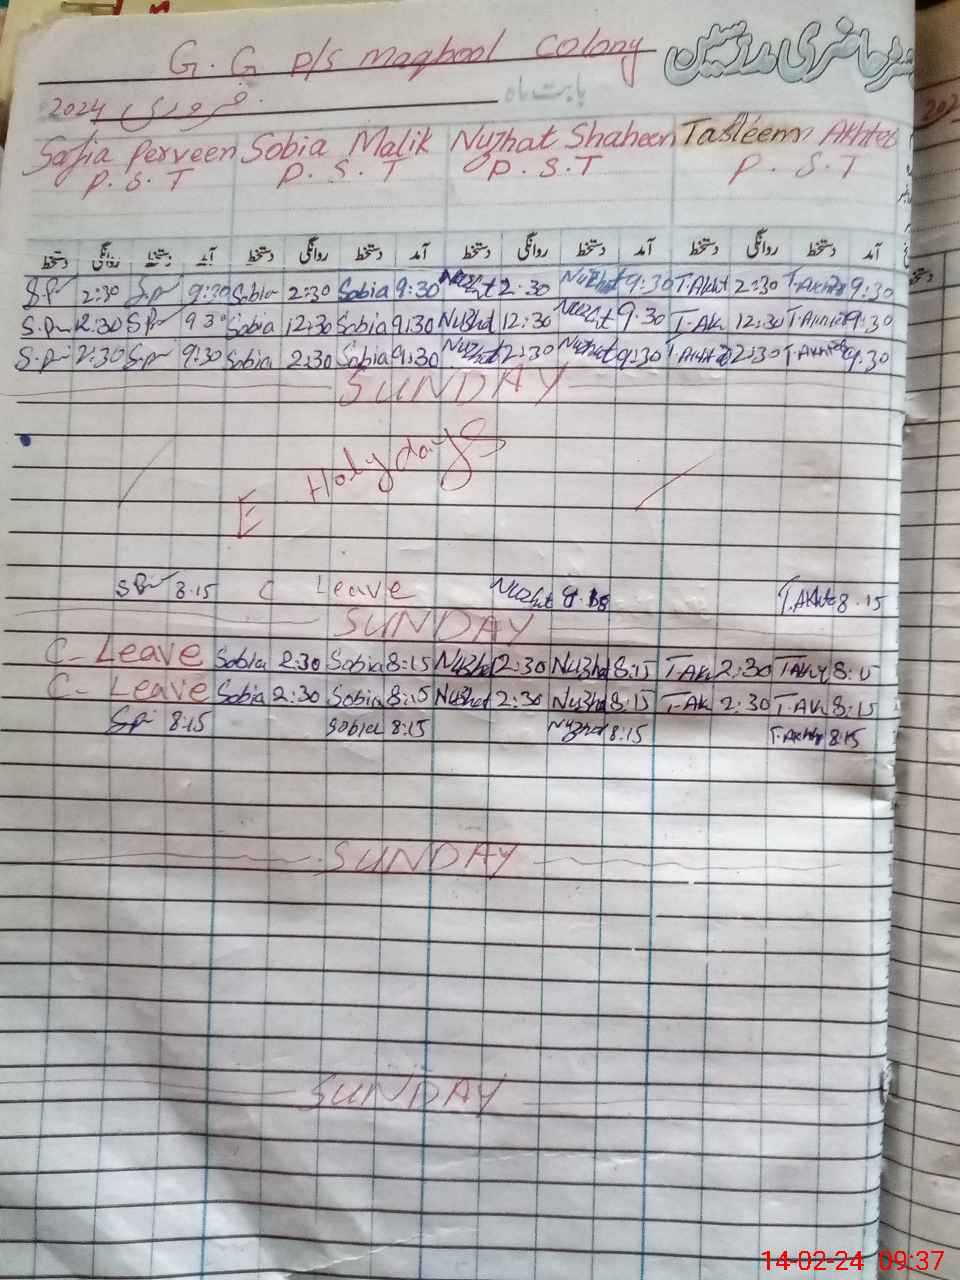 G. G P/S Maqbool Colony حاضری مدرسین
2024 فروری بابت ماہ
Safia Perveen Sobia Malik Nuzhat Shaheen Tasleem Akhter
P. S. T P. S. T P. S. T P. S. T
دستخط روانگی دستخط آمد دستخط روانگی دستخط آمد دستخط روانگی دستخط آمد دستخط روانگی دستخط آمد
S.P 2:30 S.P 9:30 Sobia 2:30 Sobia 9:30 Nuzhat 2:30 Nuzhat 9:30 T.Akht 2:30 T.Akhter 9:30
S.P 12:30 S.P 9 30 Sobia 12:30 Sobia 9:30 Nuzhat 12:30 Nuzhat 9.30 T-Ak 12:30 9:30
S.P 2:30 S.P 9:30 Sobia 2:30 Sobia 9:30 Nuzhat 2:30 Nuzhat 9:30 2:30 T.Akhter 9:30
SUNDAY
E Holydays
S P 8.15 C Leave Nuzhat T.Akhte 8.15
SUNDAY
C- Leave Sobia 2:30 Sobia 8:15 Nuzhat 2:30 Nuzhat 8:15 T-Ak 2:30 T.Ak 8:15
C- Leave Sobia 2:30 Sobia 8:15 Nuzhat 2:30 Nuzhat 8:15 T-Ak 2:30 T.Ak 8:15
S.P 8:15 Sobia 8:15 Nuzhat 8:15 T.Akhte 8:15
SUNDAY
SUNDAY
14-02-24 09:37